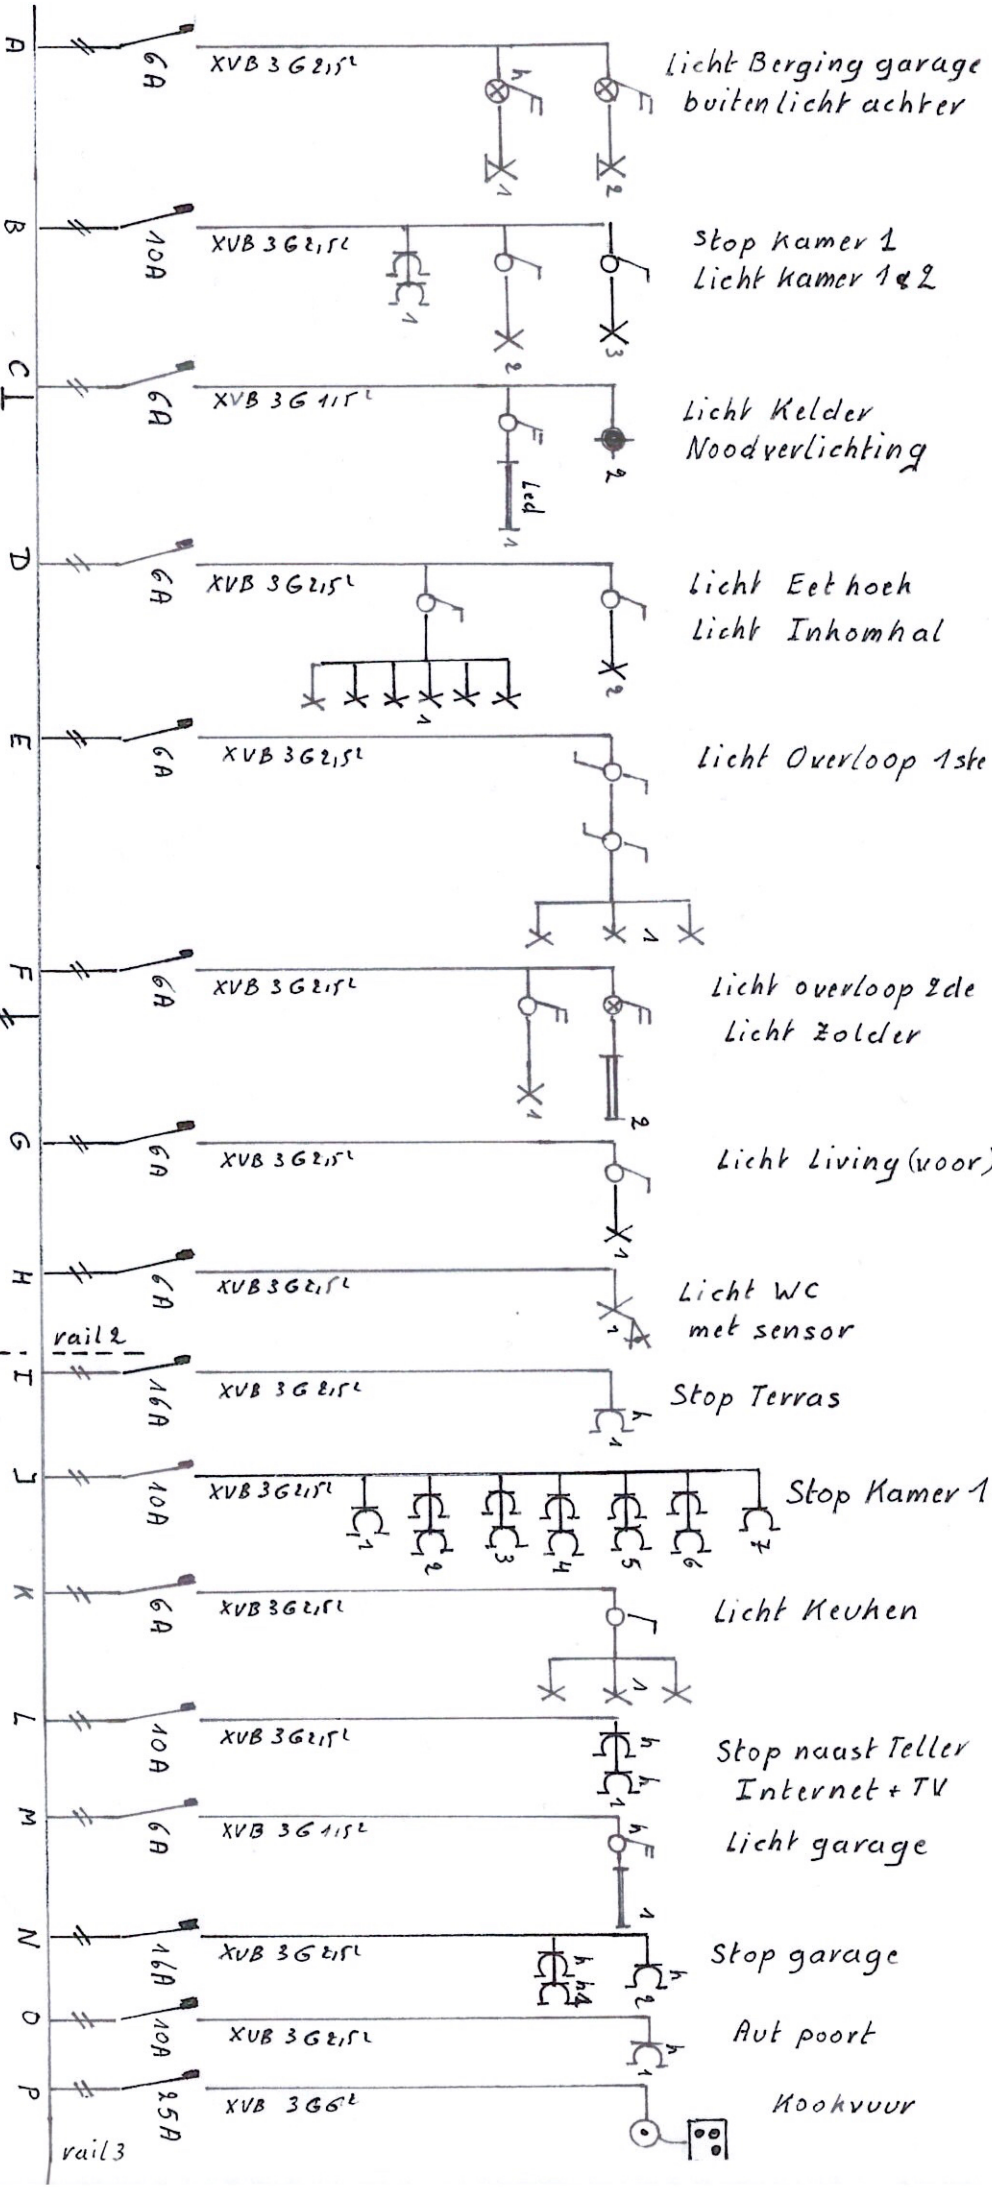 A
6A
XVB 3G2,5²
h
1
2
Licht Berging garage
buitenlicht achter
B
10A
XVB 3G2,5²
1
2
3
Stop Kamer 1
Licht Kamer 1&2
C
6A
XVB 3G1,5²
Led
1
2
Licht Kelder
Noodverlichting
D
6A
XVB 3G2,5²
1
2
Licht Eethoek
Licht Inkomhal
E
6A
XVB 3G2,5²
1
Licht Overloop 1ste
F
6A
XVB 3G2,5²
1
2
Licht overloop 2de
Licht Zolder
G
6A
XVB 3G2,5²
1
Licht Living (voor)
H
6A
XVB 3G2,5²
1
Licht WC
met sensor
rail 2
I
16A
XVB 3G2,5²
h
1
Stop Terras
J
10A
XVB 3G2,5²
1
2
3
4
5
6
7
Stop Kamer 1
K
6A
XVB 3G2,5²
1
Licht Keuken
L
10A
XVB 3G2,5²
h
h
1
Stop naast Teller
Internet + TV
M
6A
XVB 3G1,5²
h
1
Licht garage
N
16A
XVB 3G2,5²
h h1
h
2
Stop garage
O
10A
XVB 3G2,5²
h
1
Aut poort
P
25A
XVB 3G6²
Kookvuur
rail 3